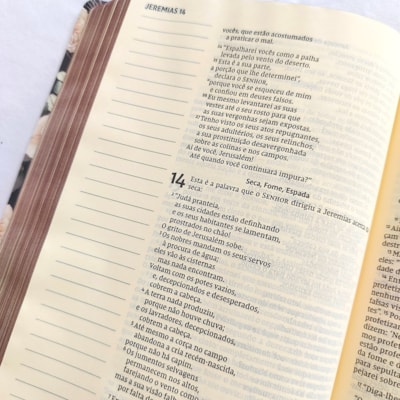 JEREMIAS 14
vocês, que estão acostumados
a praticar o mal.
24 "Espalharei vocês como a palha
levada pelo vento do deserto.
25 Esta é a sua parte,
a porção que lhe determinei",
declara o SENHOR,
"porque você se esqueceu de mim
e confiou em deuses falsos.
26 Eu mesmo levantarei as suas
vestes até o seu rosto para que
as suas vergonhas sejam expostas.
27 Tenho visto os seus atos repugnantes,
os seus adultérios, os seus relinchos,
a sua prostituição desavergonhada
sobre as colinas e nos campos.
Ai de você, Jerusalém!
Até quando você continuará impura?"
Seca, Fome, Espada
14 Esta é a palavra que o SENHOR dirigiu a Jeremias acerca da
seca:
2 "Judá pranteia,
as suas cidades estão definhando
e os seus habitantes se lamentam,
prostrados no chão!
O grito de Jerusalém sobe.
3 Os nobres mandam os seus servos
à procura de água;
eles vão às cisternas
mas nada encontram.
Voltam com os potes vazios,
e, decepcionados e desesperados,
cobrem a cabeça.
4 A terra nada produziu,
porque não houve chuva;
e os lavradores, decepcionados,
cobrem a cabeça.
5 Até mesmo a corça no campo
abandona a cria recém-nascida,
porque não há capim.
6 Os jumentos selvagens
permanecem nos altos,
farejando o vento como
mas a sua visão falha
por falta de